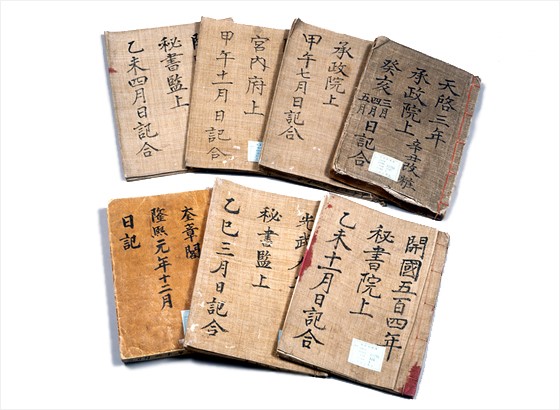 天啓三年
承政院上 辛丑改粧
癸亥三月四月五月日記合
承政院上
甲午七月日記合
宮内府上
甲午十一月日記合
秘書監上
乙未四月日記合
開國五百四年
秘書院上
乙未十一月日記合
光武
秘書監上
乙巳三月日記合
奎章閣
隆熙元年十二月
日記